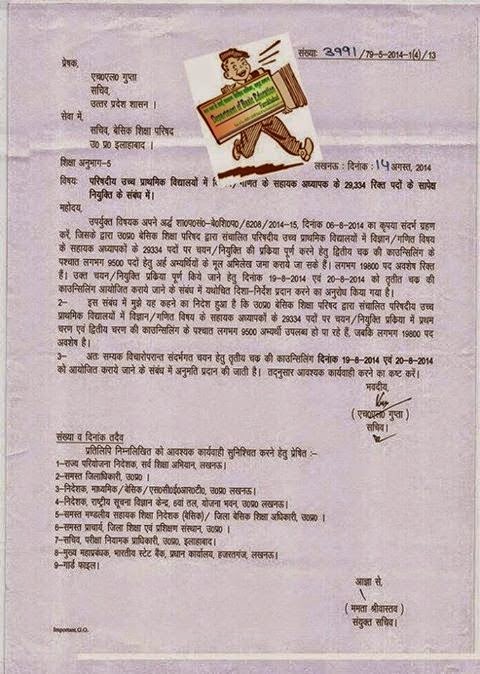 संख्याः 3991/79-5-2014-1(4)/13
प्रेषक,
एच०एल० गुप्ता
सचिव,
उत्तर प्रदेश शासन।
सेवा में,
सचिव, बेसिक शिक्षा परिषद
उ० प्र० इलाहाबाद।
Department of Basic Education
शिक्षा अनुभाग-5
लखनऊ : दिनांक : 14 अगस्त, 2014
विषयः परिषदीय उच्च प्राथमिक विद्यालयों में विज्ञान/गणित के सहायक अध्यापक के 29,334 रिक्त पदों के सापेक्ष
नियुक्ति के संबंध में।
महोदय,
उपर्युक्त विषयक अपने अर्द्ध शा०प०सं०-बे०शि०प०/6208/2014-15, दिनांक 06-8-2014 का कृपया संदर्भ ग्रहण
करें, जिसके द्वारा उ०प्र० बेसिक शिक्षा परिषद द्वारा संचालित परिषदीय उच्च प्राथमिक विद्यालयों में विज्ञान/गणित विषय
के सहायक अध्यापकों के 29334 पदों पर चयन/नियुक्ति की प्रक्रिया पूर्ण करने हेतु द्वितीय चक्र की काउन्सलिंग के
पश्चात लगभग 9500 पदों हेतु अर्ह अभ्यर्थियों के मूल अभिलेख जमा कराये जा सके हैं। लगभग 19800 पद अवशेष रिक्त
हैं। उक्त चयन/नियुक्ति प्रक्रिया पूर्ण किये जाने हेतु दिनांक 19-8-2014 एवं 20-8-2014 को तृतीय चक्र की
काउन्सिलिंग आयोजित कराये जाने के संबंध में यथोचित दिशा-निर्देश प्रदान करने का अनुरोध किया गया है।
2- इस संबंध में मुझे यह कहने का निदेश हुआ है कि उ०प्र० बेसिक शिक्षा परिषद द्वारा संचालित परिषदीय उच्च
प्राथमिक विद्यालयों में विज्ञान/गणित विषय के सहायक अध्यापकों के 29334 पदों पर चयन/नियुक्ति प्रक्रिया में प्रथम
चरण एवं द्वितीय चरण की काउन्सिलिंग के पश्चात लगभग 9500 अभ्यर्थी उपलब्ध हो पा रहे हैं, जबकि लगभग 19800 पद
अवशेष है।
3- अतः सम्यक विचारोपरान्त संदर्भगत चयन हेतु तृतीय चक्र की काउन्सिलिंग दिनांक 19-8-2014 एवं 20-8-2014
को आयोजित कराये जाने के संबंध में अनुमति प्रदान की जाती है। तद्नुसार आवश्यक कार्यवाही करने का कष्ट करें।
भवदीय,
( एच०एल० गुप्ता )
सचिव।
संख्या व दिनांक तदैव
प्रतिलिपि निम्नलिखित को आवश्यक कार्यवाही सुनिश्चित करने हेतु प्रेषित :-
1-राज्य परियोजना निदेशक, सर्व शिक्षा अभियान, लखनऊ।
2-समस्त जिलाधिकारी, उ०प्र०।
3-निदेशक, माध्यमिक/बेसिक/एस०सी०ई०आर०टी०, उ०प्र० लखनऊ।
4-निदेशक, राष्ट्रीय सूचना विज्ञान केन्द्र, 6वां तल, योजना भवन, उ०प्र० लखनऊ।
5-समस्त मण्डलीय सहायक शिक्षा निदेशक (बेसिक)/ जिला बेसिक शिक्षा अधिकारी, उ०प्र०।
6-समस्त प्राचार्य, जिला शिक्षा एवं प्रशिक्षण संस्थान, उ०प्र०।
7-सचिव, परीक्षा नियामक प्राधिकारी, उ०प्र०, इलाहाबाद।
8-मुख्य महाप्रबंधक, भारतीय स्टेट बैंक, प्रधान कार्यालय, हजरतगंज, लखनऊ।
9-गार्ड फाइल।
आज्ञा से,
( ममता श्रीवास्तव )
संयुक्त सचिव।
Important.G.O.